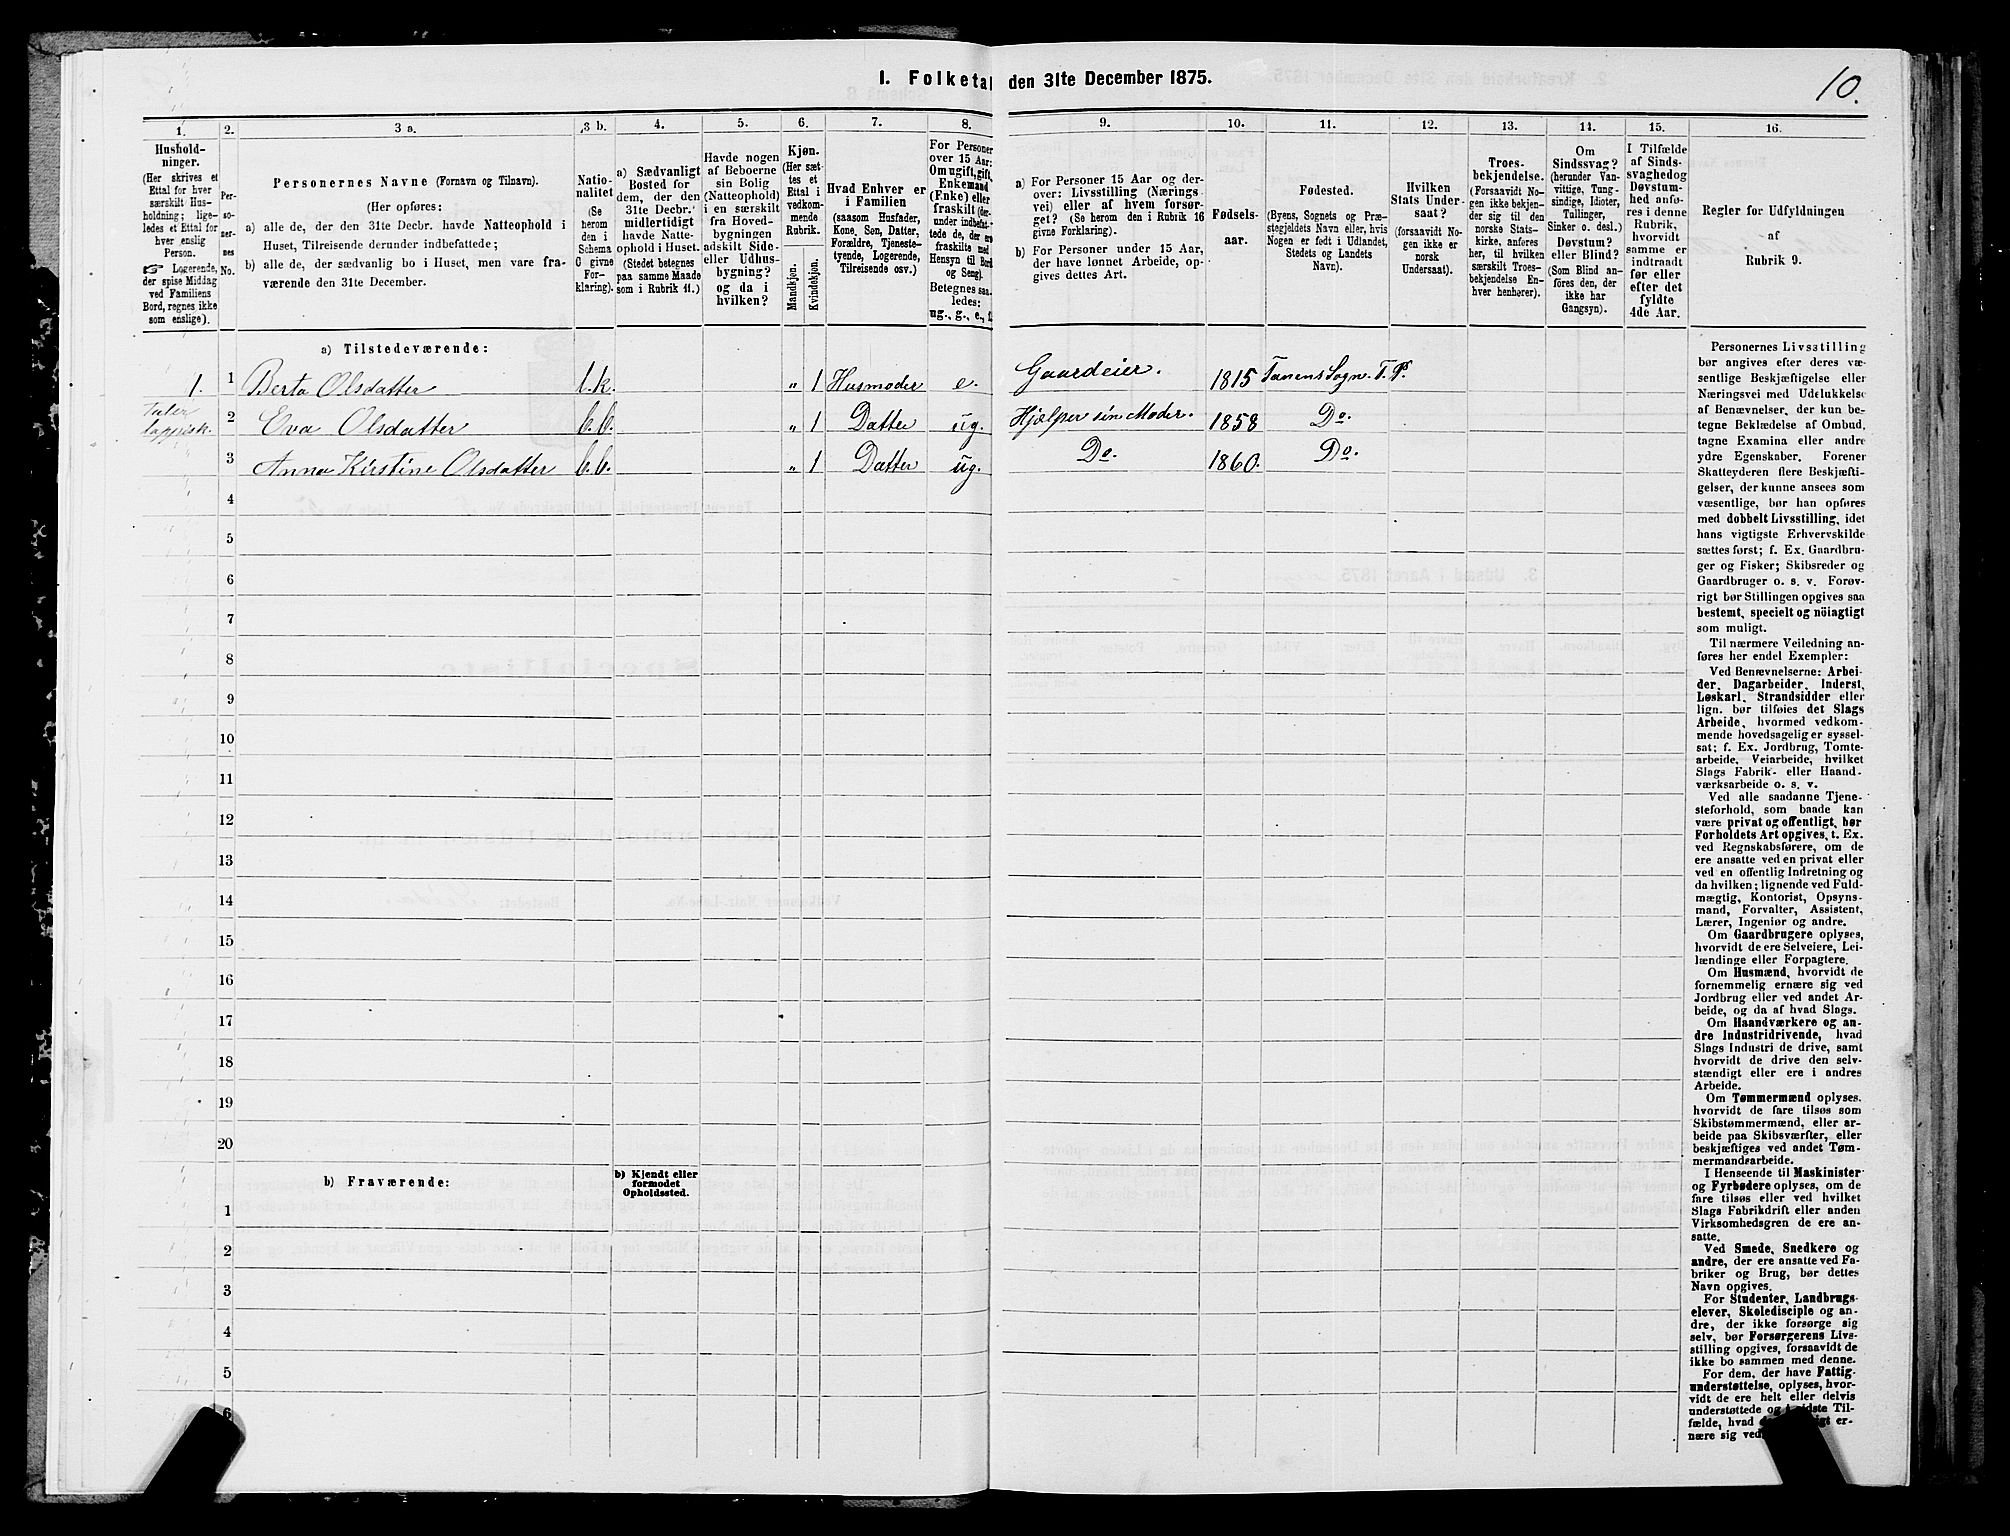 10.
I. Folketal den 31te December 1875.
1. 2. 3 a. 3 b. 4. 5. 6. 7. 8. 9. 10. 11. 12. 13. 14. 15. 16.
Hushold-
ninger.
(Her skrives et
Ettal for hver
særskilt Hus-
holdning; lige-
ledes et Ettal for
hver enslig
Person.
☞ Logerende,
der spise Middag
ved Familiens
Bord, regnes ikke
som enslige).
Per-
so-
ner-
nes
No.
Personernes Navne (Fornavn og Tilnavn).
(Her opføres:
a) alle de, der den 31te Decbr. havde Natteophold i
Huset, Tilreisende derunder indbefattede;
b) alle de, der sædvanlig bo i Huset, men vare fra-
værende den 31te December.
Natio-
nalitet
(Se
herom
den i
Schema
C givne
For-
klaring).
a) Sædvanligt
Bosted for
dem, der den
31te Decbr.
midlertidigt
havde Natte-
ophold i Huset.
(Stedet betegnes
paa samme Maade
som i Rubrik 11.)
Havde nogen
af Beboerne
sin Bolig
(Natteophold)
i en særskilt
fra Hoved-
bygningen
adskilt Side-
eller Udhus-
bygning?
og da i
hvilken?
Kjøn.
(Her sæt-
tes et
Ettal i
vedkom-
mende
Rubrik.
Mandkjøn.
Kvindekjøn.
Hvad Enhver er
i Familien
(saasom Husfader,
Kone, Søn, Datter,
Forældre, Tjeneste-
tyende, Logerende,
Tilreisende osv.)
For Personer
over 15 Aar:
Om ugift, gift,
Enkemand
(Enke) eller
fraskilt (der-
under indbefat-
tede de, der ere
fraskilte med
Hensyn til Bord
og Seng).
Betegnes saa-
ledes:
ug., g., e., f.
a) For Personer 15 Aar og der-
over: Livsstilling (Nærings-
vei) eller af hvem forsør-
get? (Se herom den i Rubrik 16
givne Forklaring).
b) For Personer under 15 Aar,
der have lønnet Arbeide, op-
gives dettes Art.
Fødsels-
aar.
Fødested.
(Byens, Sognets og Præ-
stegjeldets Navn eller, hvis
Nogen er født i Udlandet,
Stedets og Landets
Navn).
Hvilken
Stats Under-
saat?
(forsaavidt No-
gen ikke er
norsk
Undersaat).
Troes-
bekjendelse.
(Forsaavidt No-
gen ikke bekjen-
der sig til den
norske Stats-
kirke, anføres
her, til hvilken
særskilt Troes-
bekjendelse En-
hver henhører).
Om
Sindssvag?
(herunder Van-
vittige, Tung-
sindige, Idioter,
Tullinger,
Sinker o. desl.)
Døvstum?
eller Blind?
(Som Blind an-
føres den, der
ikke har
Gangsyn).
I Tilfælde
af Sinds-
svaghed og
Døvstum-
hed anfø-
res i denne
Rubrik,
hvorvidt
samme er
indtraadt
før eller
efter det
fyldte
4de Aar.
Regler for Udfyldningen
af
Rubrik 9.
a) Tilstedeværende:
1. 1 Berta Olsdatter l.k. „ 1 Husmoder e. Gaardeier. 1815 Tanens Sogn. T. P.
Taler
lappisk. 2 Eva Olsdatter b.b. „ 1 Datter ug. Hjælper sin Moder. 1858 Do.
3 Anna Kirstine Olsdatter b.b. „ 1 Datter ug. Do. 1860. Do.
4
5
6
7
8
9
10
11
12
13
14
15
16
17
18
19
20
b) Fraværende:
b) Kjendt eller
formodet
Opholdssted.
1
2
3
4
5
6
Personernes Livsstilling
bør angives efter deres væ-
sentlige Beskjæftigelse eller
Næringsvei med Udelukkelse
af Benævnelser, der kun be-
tegne Beklædelse af Ombud,
tagne Examina eller andre
ydre Egenskaber. Forener
Skatteyderen flere Beskjæfti-
gelser, der kunne ansees som
væsentlige, bør han opføres
med dobbelt Livsstilling, idet
hans vigtigste Erhvervskilde
sættes først; f. Ex. Gaardbru-
ger og Fisker; Skibsreder og
Gaardbruger o. s. v. Forøv-
rigt bør Stillingen opgives saa
bestemt, specielt og nöiagtigt
som muligt.
Til nærmere Veiledning an-
føres her endel Exempler:
Ved Benævnelserne: Arbei-
der, Dagarbeider, Inderst,
Løskarl, Strandsidder eller
lign. bør tilføies det Slags
Arbeide, hvormed vedkom-
mende hovedsagelig er syssel-
sat; f. Ex. Jordbrug, Tomte-
arbeide, Veiarbeide, hvilket
Slags Fabrik- eller Haand-
værksarbeide o. s. v.
Ved alle saadanne Tjene-
steforhold, som baade kan
være privat og offentligt, bør
Forholdets Art opgives, t. Ex.
ved Regnskabsførere, om de
ere ansatte ved en privat eller
ved en offentlig Indretning og
da hvilken; lignende ved Fuld-
mægtig, Kontorist, Opsyns-
mand, Forvalter, Assistent,
Lærer, Ingeniør og andre.
Om Gaardbrugere oplyses,
hvorvidt de ere Selveiere, Lei-
lændinge eller Forpagtere.
Om Husmænd, hvorvidt de
fornemmelig ernære sig ved
Jordbrug eller ved andet Ar-
beide, og da af hvad Slags.
Om Haandværkere og an-
dre Industridrivende, hvad
Slags Industri de drive, samt
hvorvidt de drive den selv-
stændigt eller ere i andres
Arbeide.
Om Tømmermænd oplyses,
hvorvidt de fare tilsøs som
Skibstømmermænd, eller ar-
beide paa Skibsværfter, eller
beskjæftiges ved andet Tøm-
mermandsarbeide.
I Henseende til Maskinister
og Fyrbødere oplyses, om de
fare tilsøs eller ved hvilket
Slags Fabrikdrift eller anden
Virksomhedsgren de ere an-
satte.
Ved Smede, Snedkere og
andre, der ere ansatte ved Fa-
briker og Brug, bør dettes
Navn opgives.
For Studenter, Landbrugs-
elever, Skoledisciple og an-
dre, der ikke forsørge sig
selv, bør Forsørgerens Livs-
stilling opgives, forsaavidt de
ikke bo sammen med denne.
For dem, der have Fattig-
understøttelse, oplyses, hvor-
vidt de ere helt eller delvis
understøttede og Til-
fælde, hvad er-
nære sig ved